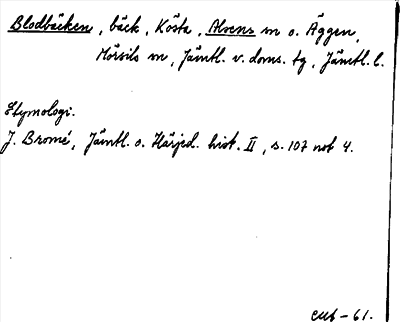 Blodbäcken, bäck, Kösta, Alsens sn o. Äggen,
Mörsils sn, Jämtl. v. doms. tg, Jämtl. l.
Etymologi.
J. Bromé, Jämtl. o. Härjed. hist. II, s. 107 not 4.
- 61.